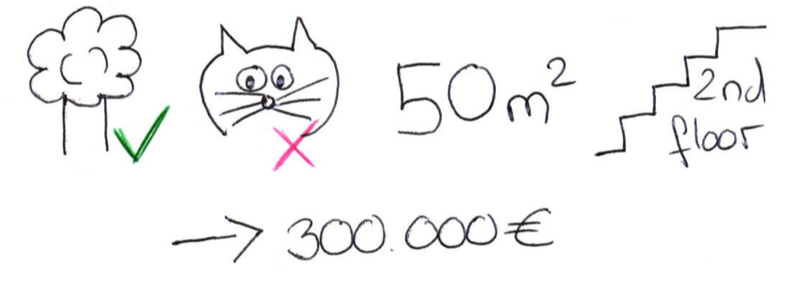 50m²
2nd
floor
→ 300.000€